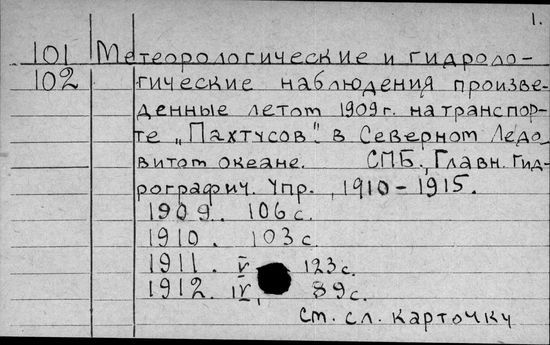 1.
101 Метеорологические и гидроло-
102 гические наблюдения произве-
денные летом 1909 г. на транспор-
те „Пахтусов" в Северном Ледо-
витом океане. СПБ., Главн. Гид-
рографич. Упр., 1910-1915.
1909. 106 с.
1910. 103 с.
1911. V 123 с.
1912. IV, 89 с.
см. сл. карточку